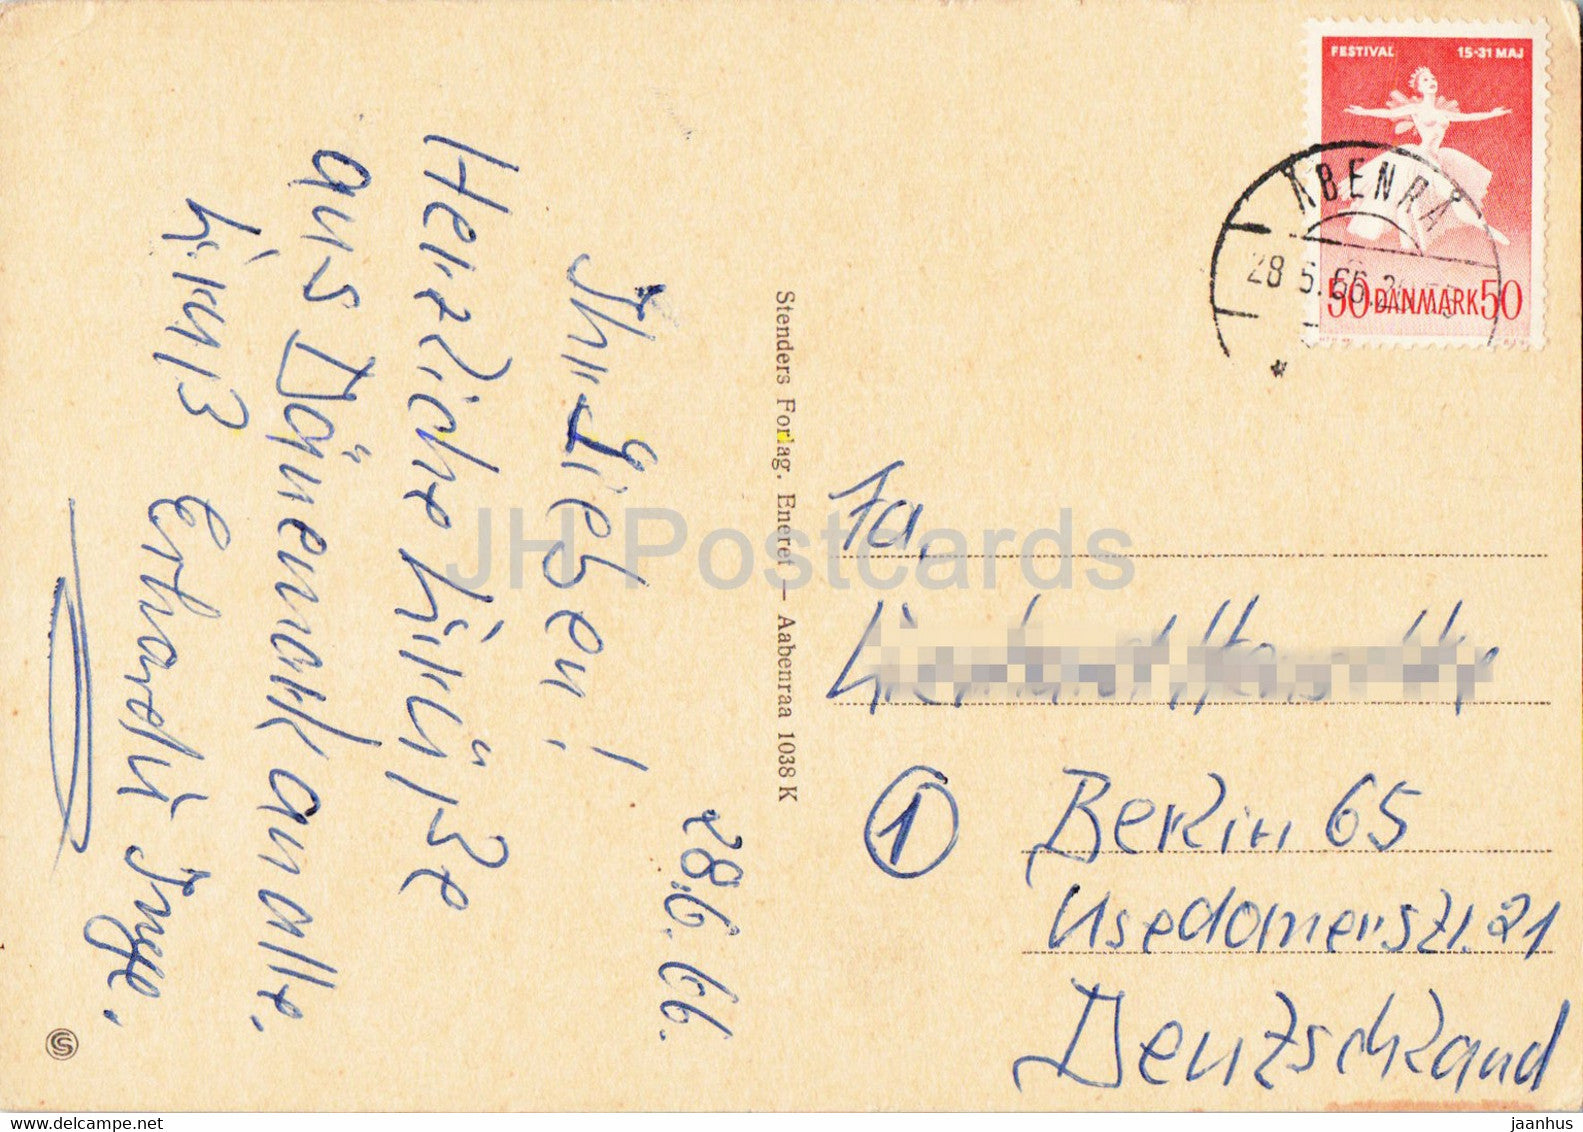 28.6.66.
Ihr Lieben!
Herzliche Grüße
aus Dänemark an alle.
Gruß Erhardt Inge.
Stenders Forlag. Eneret — Aabenraa 1038 K
FESTIVAL 15-31 MAJ
50 DANMARK 50
ÅBENRÅ
28 6.66.
Fa.
① Berlin 65
Usedomerstr. 21
Deutschland
JH Postcards
www.delcampe.net
jaanhus